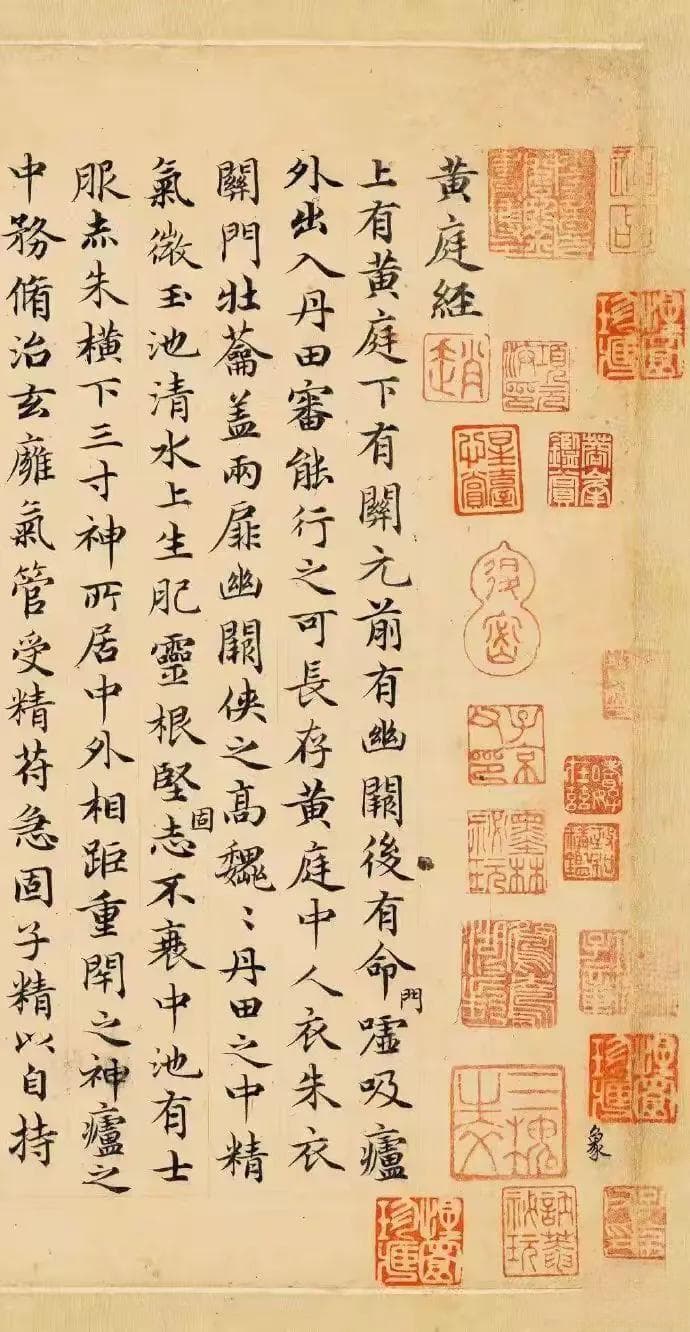 神品
象
項元汴印
子京父印
墨林祕玩
黄庭經
上有黄庭下有關元前有幽闕後有命門噓吸廬
外出入丹田審能行之可長存黄庭中人衣朱衣
關門壯蘥盖兩扉幽闕俠之高巍〻丹田之中精
氣微玉池清水上生肥靈根堅固志不衰中池有士
服赤朱橫下三寸神所居中外相距重閇之神廬之
中務脩治玄廱氣管受精苻急固子精以自持